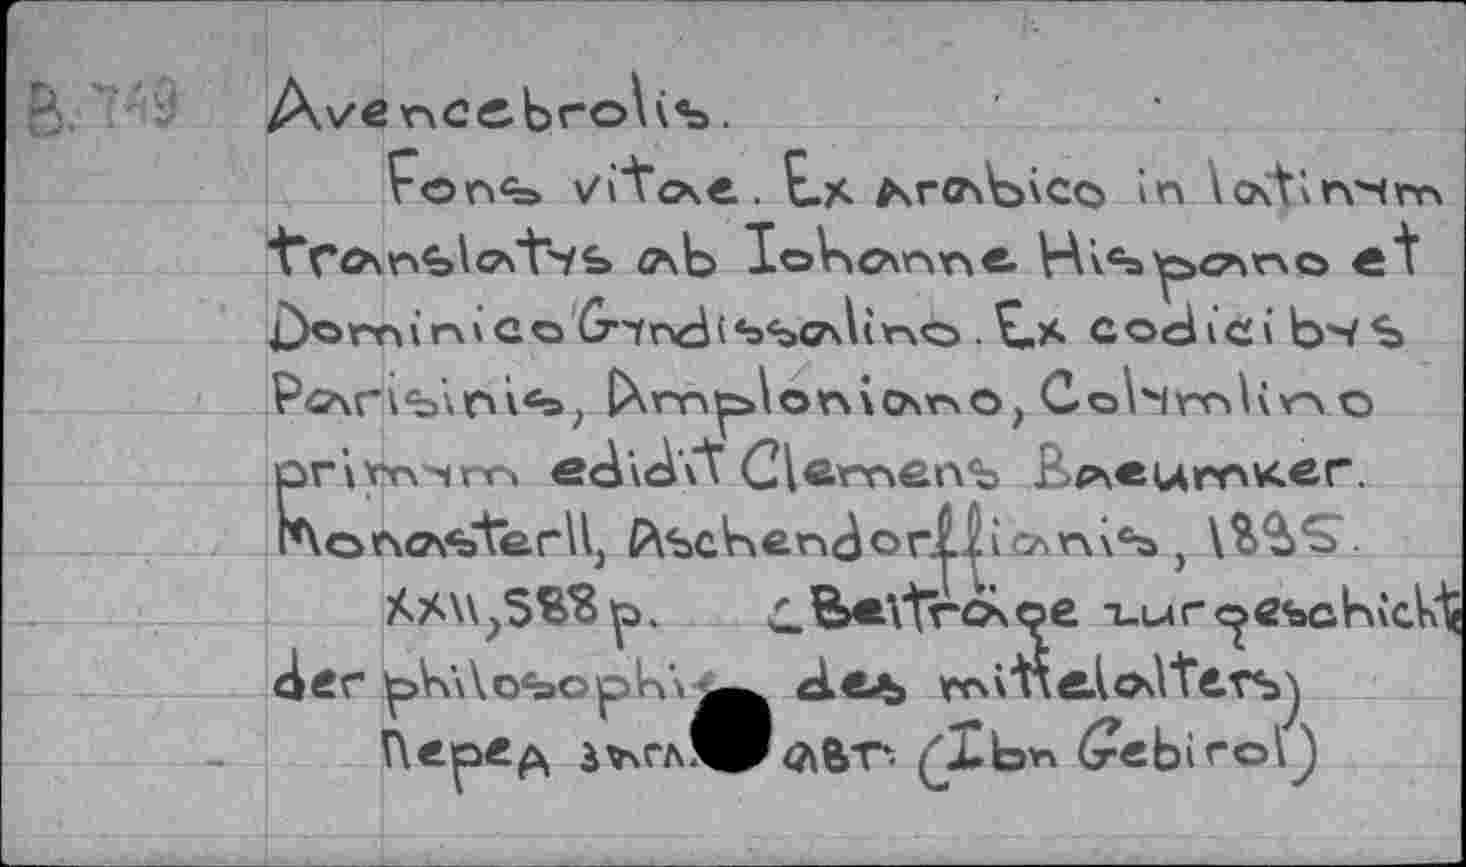 B.749
Avencebrolis.
Fons vitae. Ex Arabico in latinum
translatvs ab Iohanne Hispano et
Dominico Gundissalino. Ex codicibus
Parisinis, Amploniano, Columlino
primum edidit Clemens Baeumker.
Monasterll, Aschendorffianis, 1895.
XXII,588 p. (Beiträge zur geschicht
der philosophi des mittelalters)
Перед авт: (Ibn Gebirol)